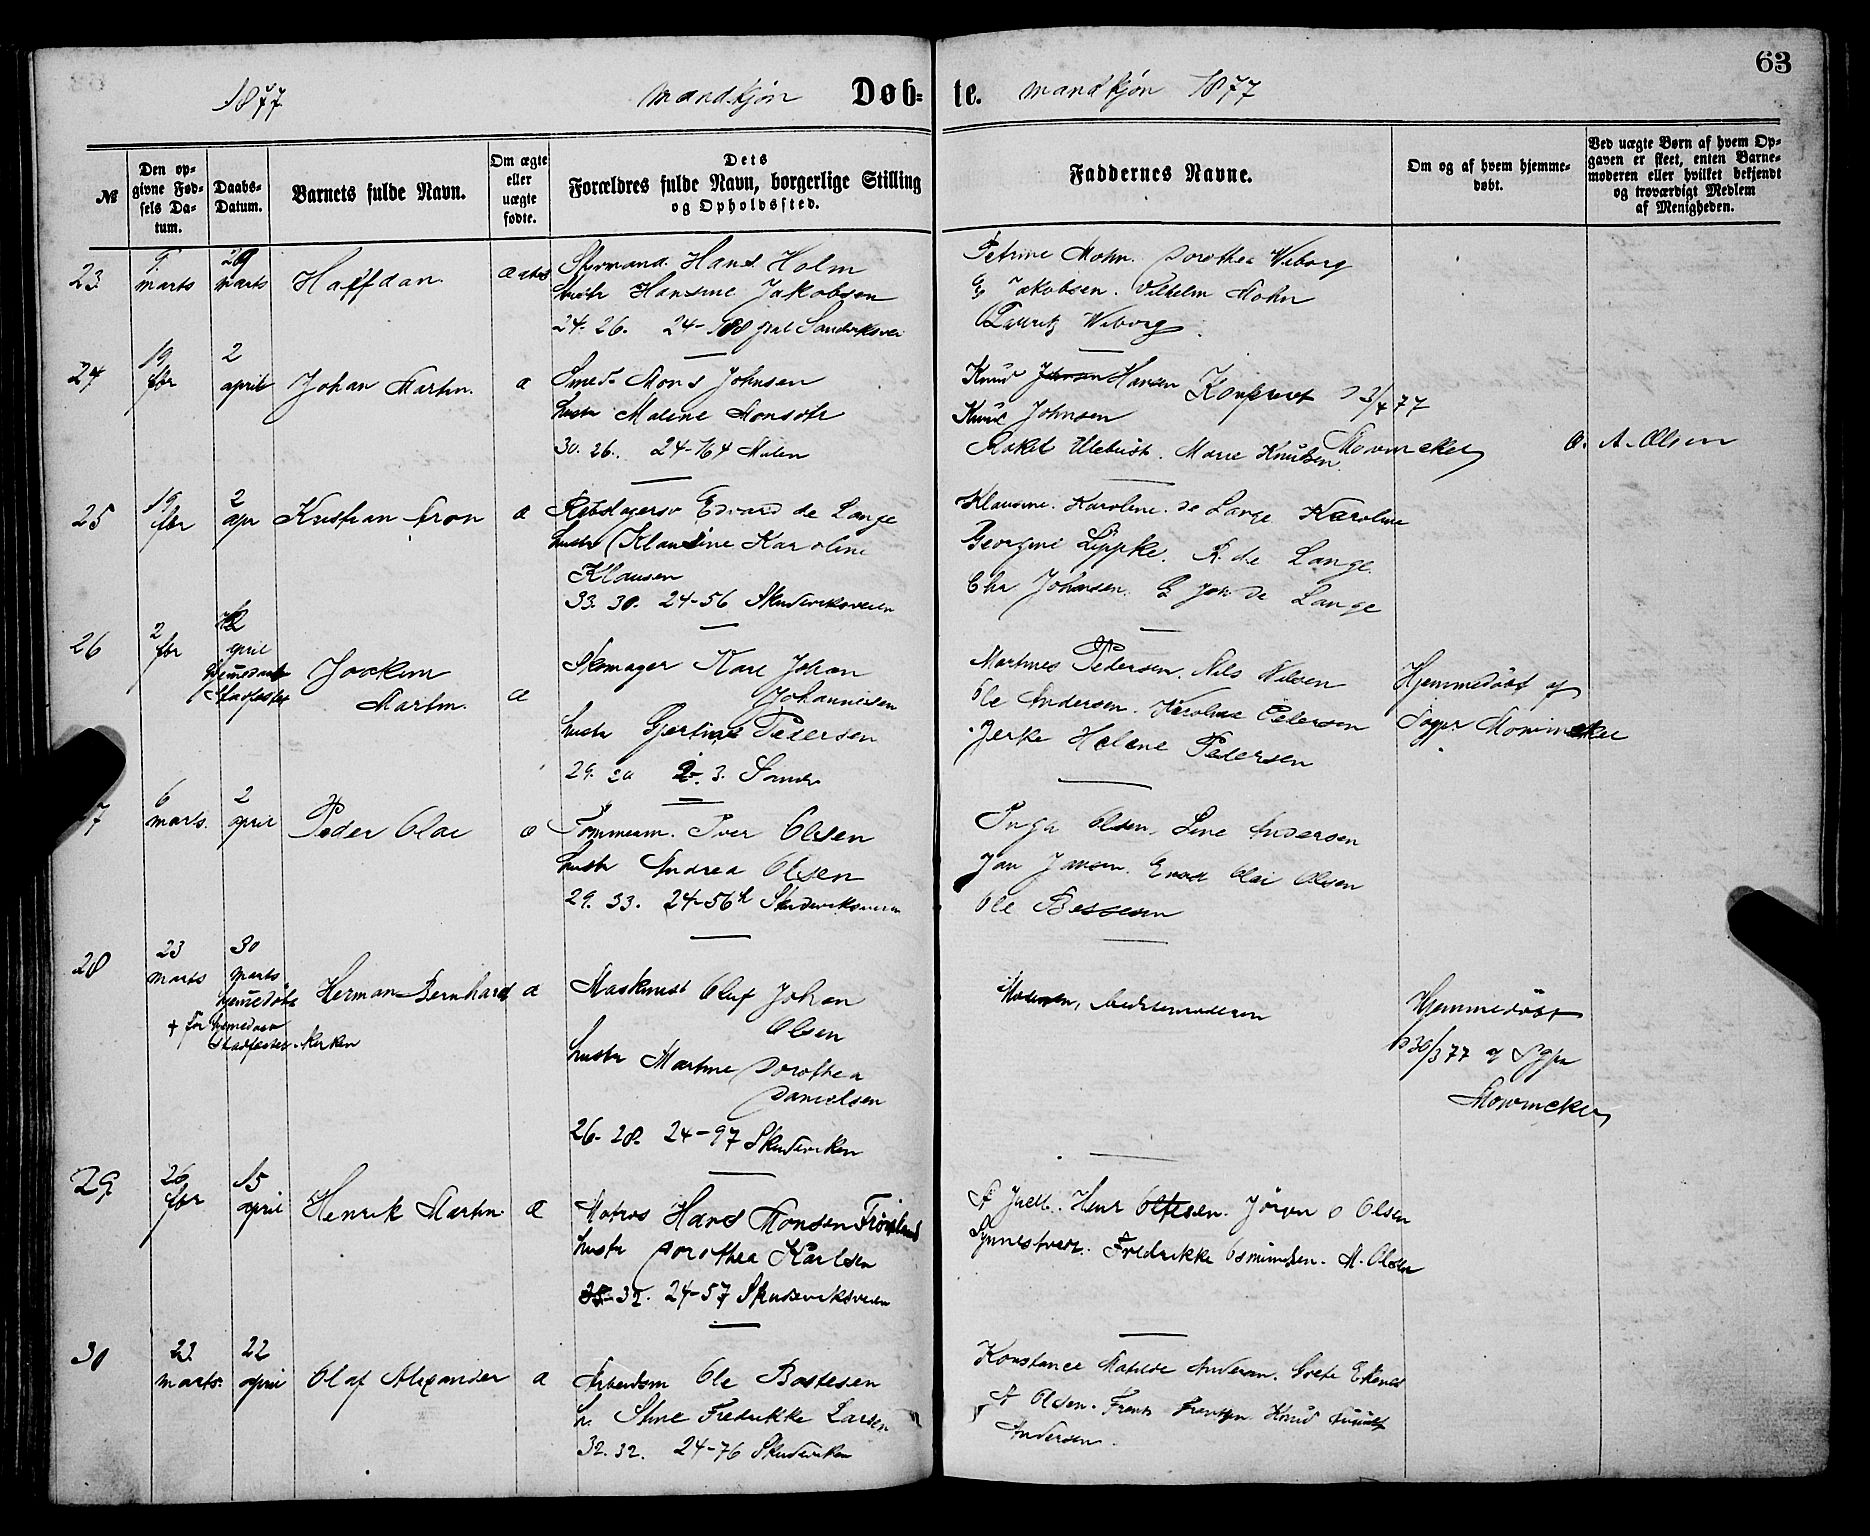 63
1877 mandkjøn Døb-te. mandkjøn 1877
№ Den opgivne Fødsels Datum. Daabs-Datum. Barnets fulde Navn. Om ægte eller uægte fødte. Dets Forældres fulde Navn, borgerlige Stilling og Opholdssted. Faddernes Navne. Om og af hvem hjemmedøbt. Ved uægte Børn af hvem Opgaven er skeet, enten Barnemoderen eller hvilket bekjendt og troværdigt Medlem af Menigheden.
23 9 marts 29 marts Halfdan Styrmand Hans Holm
hustr Hansine Jakobsen
24. 26. 24-
Petrine Mohn. Dorothea Wiborg
Jakobsen. Vilhelm Mohn
Lauritz Wiborg
24 19 fbr 2 april Johan Martin. a Smed. Mons Johnsen
hustr Malene Monsdtr
30. 26. 24-164 Mulen
Knud Hansen Konfereret 3/4 77
Knud Johnsen
Rakel Ulebust. Marie Knutsen Mowinckel
O. A. Olsen
25 19 fbr 2 apr Kristian Aron a Rebslagersv Edvard de Lange
hustr Klausine Karoline
Klausen
33. 30. 24-56 Skudeviksveien
Klausine. Karoline. de Lange Karoline
Georgine Lippke. R. de Lange.
Chr Johnsen. G Joh de Lange
26 2 fbr april hjemmedaab stadfæstet Joakem
Martin. a
Skomager Karl Johan
Johannesen
hustr Gjertine Pedersen
29. 3. Sandv
Martines Pedersen. Nils Nilsen
Ole Andersen. Karoline Pedersen
Jerke Helene Pedersen
Hjemmedøbt af
Sogpr Mowinckel
6 marts. 2 april Peder Olai Tømmerm. Iver Olsen
hustr Andrea Olsen
29. 33. 24-56 b Skudeviksveien
Inga Olsen. Line Andersen
Jan Jansen. Olai Olsen
Ole Bessesen
28 23 marts 30 marts hjemmedøbt Herman Bernhard a
+ før hjemedaab
stadfæstet i Kirken
Maskinist Oluf Johan
Olsen
hustr Martine Dorothea
Danielsen
26- 28. 24-97 Skudeviken
Moderen, bedstemoderen
Hjemmedøbt
d 30/3 77 af Sgpr
Mowinckel
29 26 fbr 15 april Henrik Martin a Matros Hans Monsen Frøisland
hustr Dorothea Karlsen
32. 24-57 Skudeviksveien
Henr Jörgen O Olsen
Fredrikke Osmundsen. M. Olsen
30 23 marts. 22 april Olaf Alexander a Arbeidsm Ole Bastesen
h. Stine Fredrikke Larsen
32. 32. 24-76 Skudeviken
Konstance Matilde Andersen. Grete
A Olsen. Frents Frentzen Knud
Andersen.